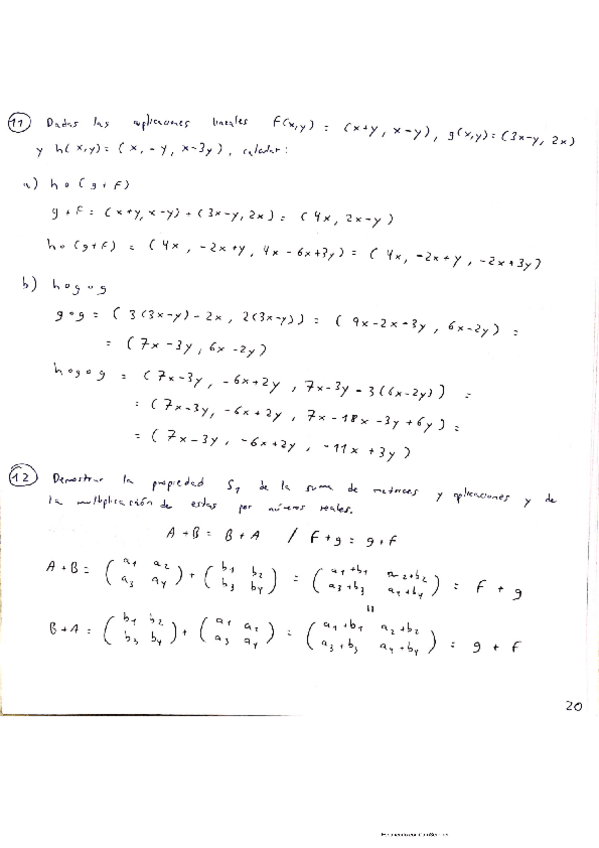 11 Dadas las aplicaciones lineales f(x,y) = (x+y, x-y), g(x,y) = (3x-y, 2x)
y h(x,y) = (x, -y, x-3y), calcular:
a) h∘(g+f)
g+f = (x+y, x-y) + (3x-y, 2x) = (4x, 2x-y)
h∘(g+f) = (4x, -2x+y, 4x-6x+3y) = (4x, -2x+y, -2x+3y)
b) h∘g∘g
g∘g = (3(3x-y)-2x, 2(3x-y)) = (9x-2x-3y, 6x-2y) =
= (7x-3y, 6x-2y)
h∘g∘g = (7x-3y, -6x+2y, 7x-3y-3(6x-2y)) =
= (7x-3y, -6x+2y, 7x-18x-3y+6y) =
= (7x-3y, -6x+2y, -11x+3y)
12 Demostrar la propiedad S1 de la suma de matrices y aplicaciones y de
la multiplicación de estas por números reales.
A+B = B+A / f+g = g+f
A+B = (a1 a2 a3 a4) + (b1 b2 b3 b4) = (a1+b1 a2+b2 a3+b3 a4+b4) = f+g
"
B+A = (b1 b2 b3 b4) + (a1 a2 a3 a4) = (a1+b1 a2+b2 a3+b3 a4+b4) = g+f
20